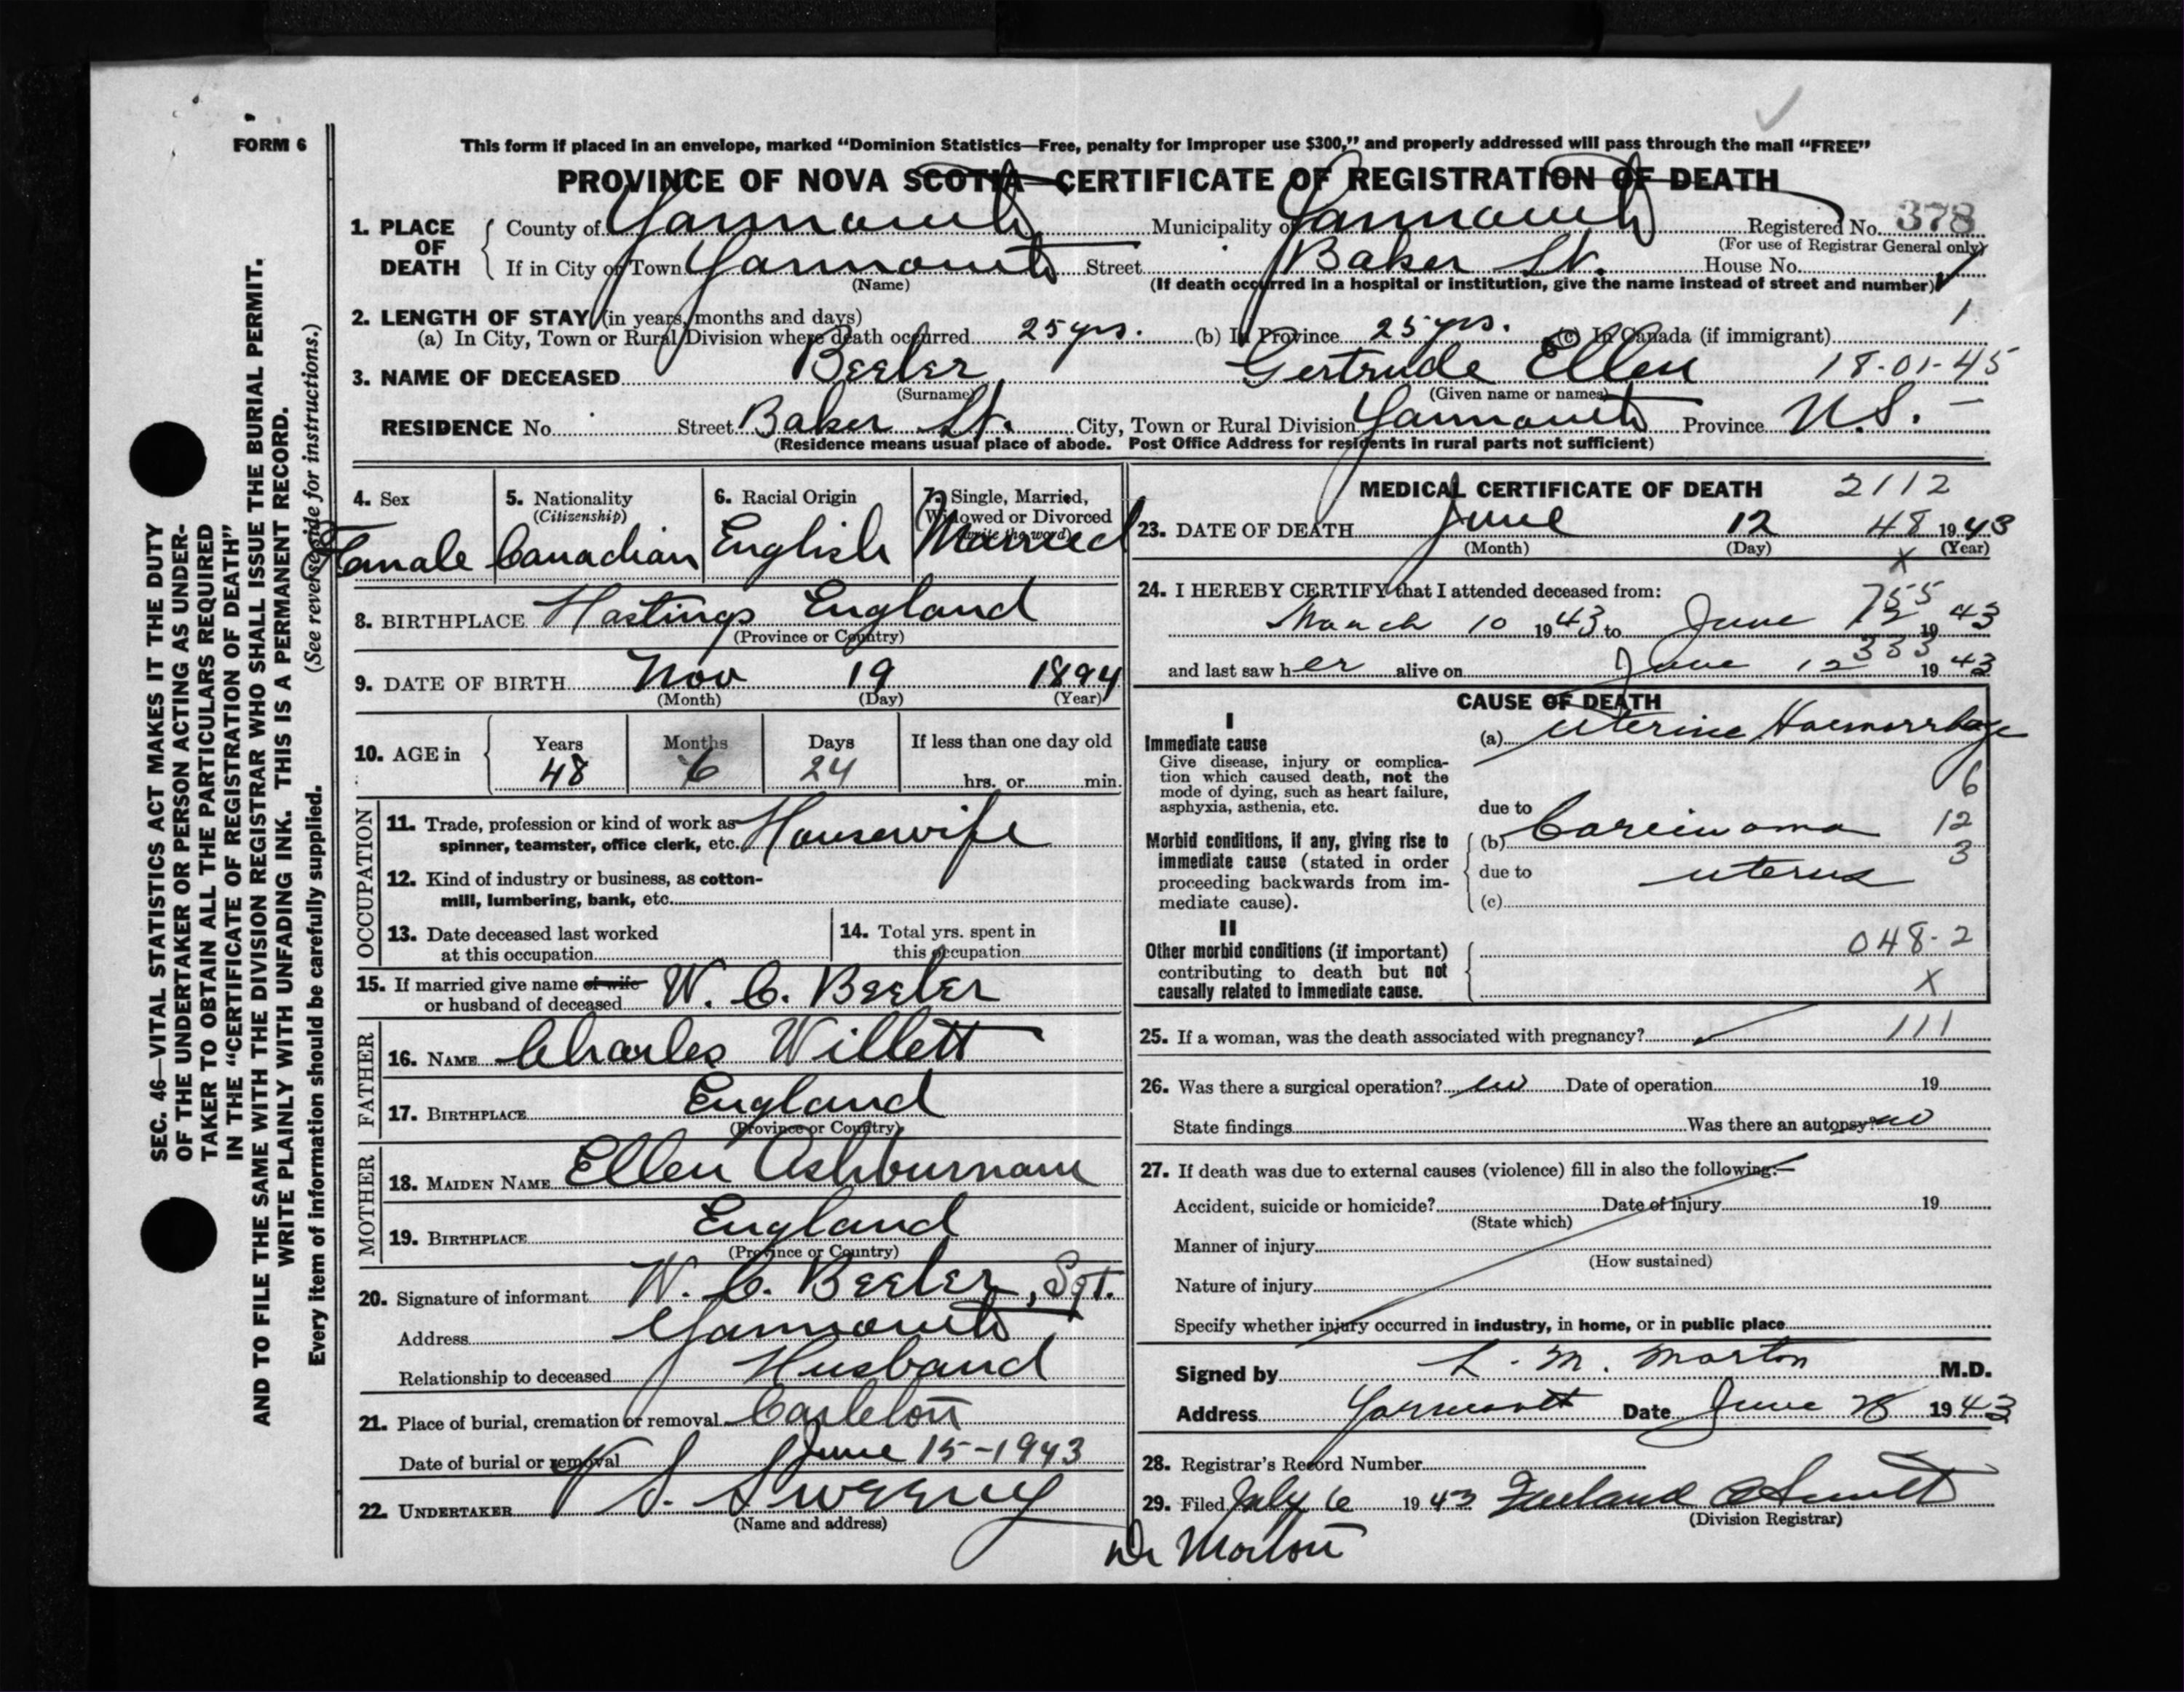 FORM 6
This form if placed in an envelope, marked “Dominion Statistics—Free, penalty for improper use $300,” and properly addressed will pass through the mail “FREE”
PROVINCE OF NOVA SCOTIA—CERTIFICATE OF REGISTRATION OF DEATH
1. PLACE OF DEATH
County of Yarmouth Municipality of Yarmouth Registered No. 378
(For use of Registrar General only)
If in City or Town Yarmouth Street Baker St. House No.
(Name)
(If death occurred in a hospital or institution, give the name instead of street and number)
2. LENGTH OF STAY (in years, months and days) 1
(a) In City, Town or Rural Division where death occurred 25 yrs. (b) In Province 25 yrs. (c) In Canada (if immigrant)
3. NAME OF DECEASED Beeler Gertrude Ellen 18-01-45
(Surname) (Given name or names)
RESIDENCE No. Street Baker St. City, Town or Rural Division Yarmouth Province N.S. —
(Residence means usual place of abode. Post Office Address for residents in rural parts not sufficient)
4. Sex
Female
5. Nationality
(Citizenship)
Canadian
6. Racial Origin
English
7. Single, Married,
Widowed or Divorced
(write the word)
Married
8. BIRTHPLACE Hastings England
(Province or Country)
9. DATE OF BIRTH Nov 19 1894
(Month) (Day) (Year)
10. AGE in
Years Months Days If less than one day old
48 6 24 hrs. or min.
OCCUPATION
11. Trade, profession or kind of work as
spinner, teamster, office clerk, etc. Housewife
12. Kind of industry or business, as cotton-
mill, lumbering, bank, etc.
13. Date deceased last worked
at this occupation
14. Total yrs. spent in
this occupation
15. If married give name of wife
or husband of deceased W. C. Beeler
FATHER
16. NAME Charles Willett
17. BIRTHPLACE England
(Province or Country)
MOTHER
18. MAIDEN NAME Ellen Ashburnam
19. BIRTHPLACE England
(Province or Country)
20. Signature of informant W. C. Beeler, Sgt.
Address Yarmouth
Relationship to deceased Husband
21. Place of burial, cremation or removal Carleton
Date of burial or removal June 15-1943
22. UNDERTAKER V S. Sweeny
(Name and address)
MEDICAL CERTIFICATE OF DEATH 2112
23. DATE OF DEATH June 12 48 1943
(Month) (Day) (Year)
X
24. I HEREBY CERTIFY that I attended deceased from:
755
March 10 1943 to June 12 1943
333
and last saw her alive on June 12 1943
CAUSE OF DEATH
I
Immediate cause
Give disease, injury or complica-
tion which caused death, not the
mode of dying, such as heart failure,
asphyxia, asthenia, etc.
(a) Uterine Haemorrhage
6
due to
Morbid conditions, if any, giving rise to
immediate cause (stated in order
proceeding backwards from im-
mediate cause).
(b) Carcinoma 12
3
due to uterus
(c)
II
Other morbid conditions (if important)
contributing to death but not
causally related to immediate cause.
048-2
X
25. If a woman, was the death associated with pregnancy? 111
26. Was there a surgical operation? no Date of operation 19
State findings Was there an autopsy? no
27. If death was due to external causes (violence) fill in also the following:—
Accident, suicide or homicide? Date of injury 19
(State which)
Manner of injury
(How sustained)
Nature of injury
Specify whether injury occurred in industry, in home, or in public place
Signed by L. M. Morton M.D.
Address Yarmouth Date June 28 1943
28. Registrar's Record Number
29. Filed July 6 1943
(Division Registrar)
Dr Morton
SEC. 46—VITAL STATISTICS ACT MAKES IT THE DUTY
OF THE UNDERTAKER OR PERSON ACTING AS UNDER-
TAKER TO OBTAIN ALL THE PARTICULARS REQUIRED
IN THE “CERTIFICATE OF REGISTRATION OF DEATH”
AND TO FILE THE SAME WITH THE DIVISION REGISTRAR WHO SHALL ISSUE THE BURIAL PERMIT.
WRITE PLAINLY WITH UNFADING INK. THIS IS A PERMANENT RECORD.
Every item of information should be carefully supplied. (See reverse side for instructions.)